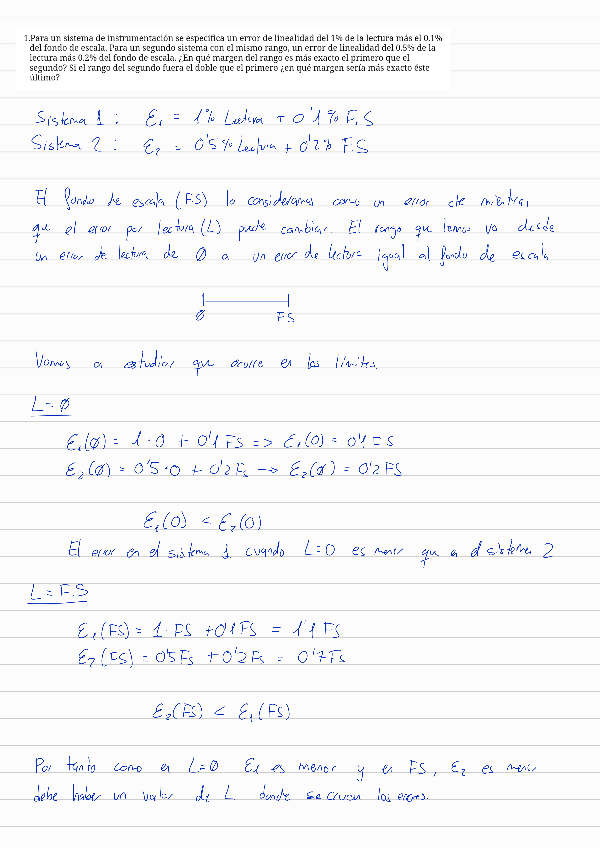 1.Para un sistema de instrumentación se especifica un error de linealidad del 1% de la lectura más el 0.1%
del fondo de escala. Para un segundo sistema con el mismo rango, un error de linealidad del 0.5% de la
lectura más 0.2% del fondo de escala. ¿En qué margen del rango es más exacto el primero que el
segundo? Si el rango del segundo fuera el doble que el primero ¿en qué margen sería más exacto éste
último?
Sistema 1 : Ɛ₁ = 1% Lectura + 0'1% F.S
Sistema 2 : Ɛ₂ = 0'5% Lectura + 0'2% F.S
El fondo de escala (F.S) lo consideramos como un error cte mientras
que el error por lectura (L) puede cambiar. El rango que temos va desde
un error de lectura de Ø a un error de lectura igual al fondo de escala
Ø F.S
Vamos a estudiar que ocurre en los límites.
L = Ø
Ɛ₁(Ø) = 1 · 0 + 0'1 FS => Ɛ₁(0) = 0'1 FS
Ɛ₂(Ø) = 0'5 · 0 + 0'2 FS -> Ɛ₂(Ø) = 0'2 FS
Ɛ₁(0) < Ɛ₂(0)
El error en el sistema 1 cuando L=0 es menor que a el sistema 2
L = F.S
Ɛ₁(FS) = 1 · FS + 0'1 FS = 1'1 FS
Ɛ₂(FS) = 0'5 FS + 0'2 FS = 0'7 FS
Ɛ₂(FS) < Ɛ₁(FS)
Por tanto como en L=Ø Ɛ₁ es menor y en FS, Ɛ₂ es menor
debe haber un valor de L donde se crucen los errores.